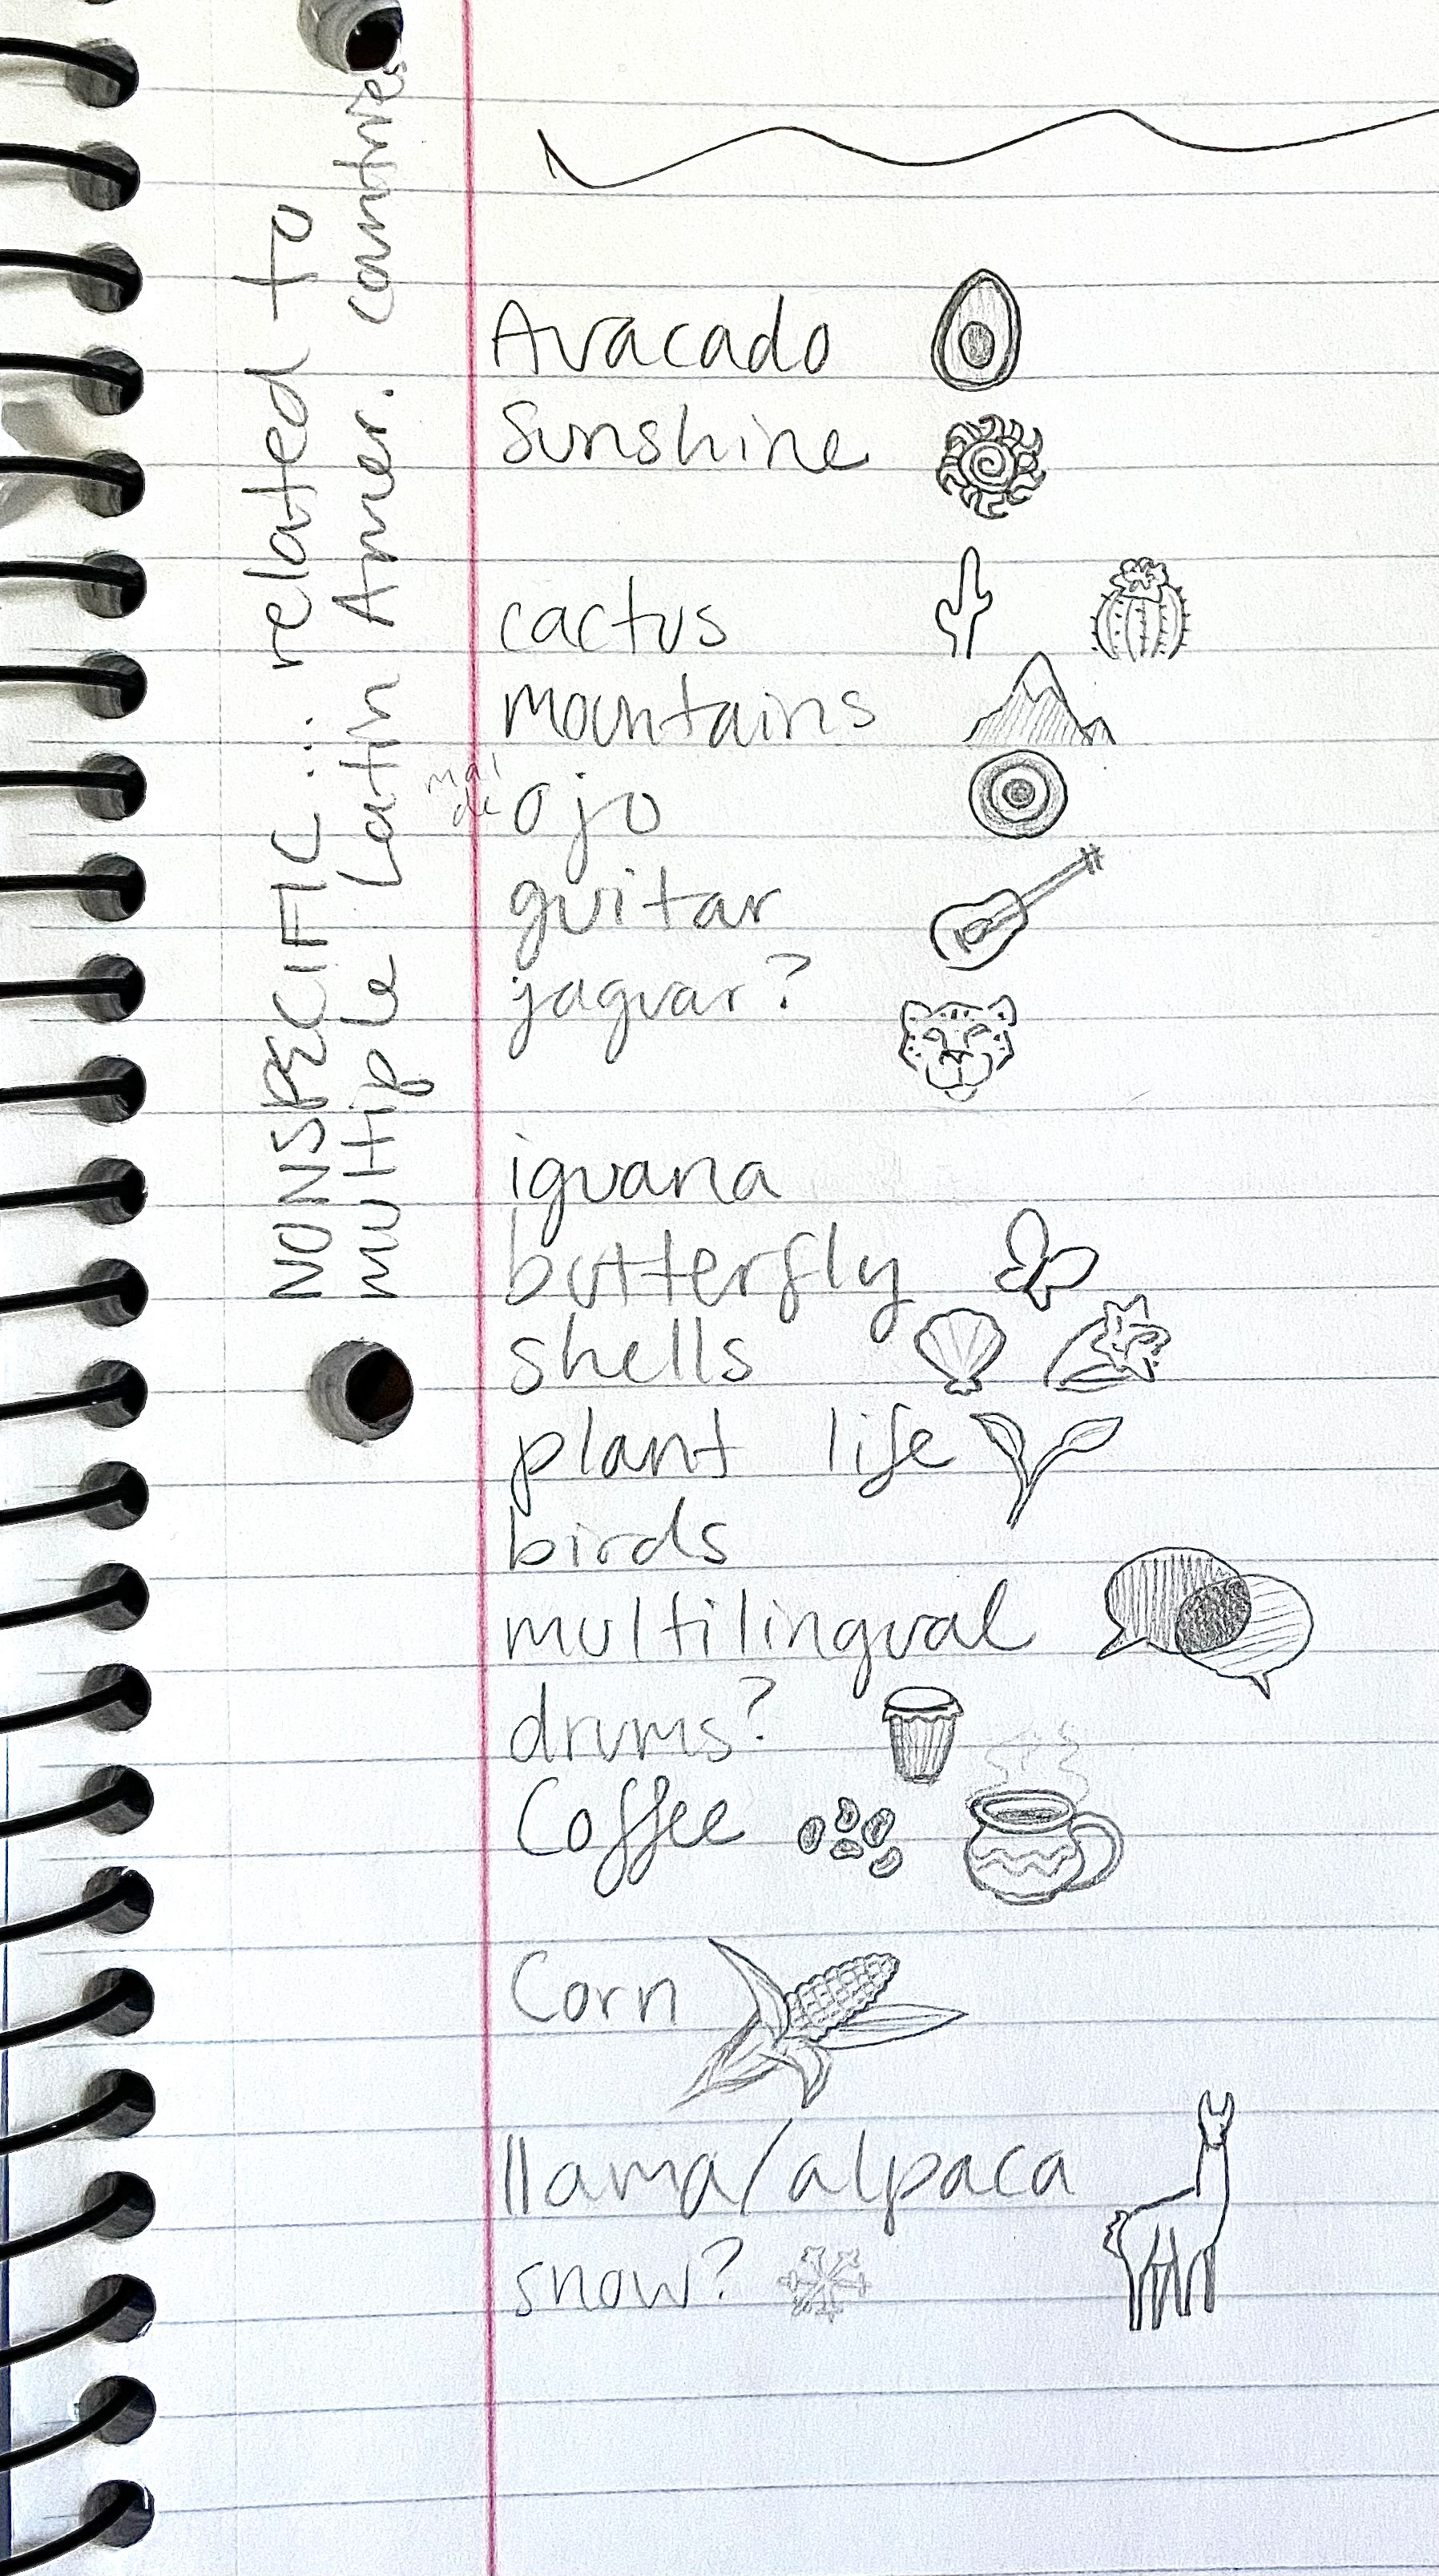 NONSPECIFIC... related to
multiple Latin Amer. countries
Avacado
Sunshine
cactus
mountains
mal de ojo
guitar
jaguar?
iguana
butterfly
shells
plant life
birds
multilingual
drums?
Coffee
Corn
llama/alpaca
snow?